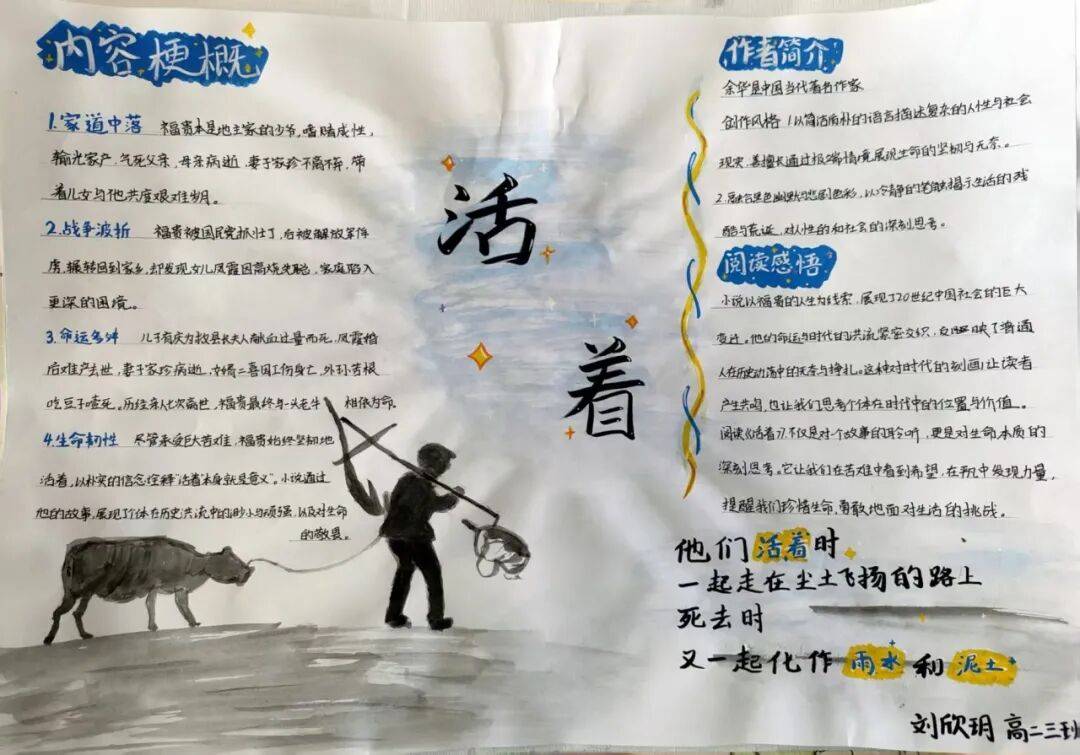 内容梗概
1.家道中落 福贵本是地主家的少爷,嗜赌成性,
输光家产,气死父亲,母亲病逝,妻子家珍不离不弃,带
着儿女与他共度艰难岁月。
2.战争波折 福贵被国民党抓壮丁,后被解放军俘
虏,辗转回到家乡,却发现女儿凤霞因高烧失聪,家庭陷入
更深的困境。
3.命运多舛 儿子有庆为救县长夫人献血过量而死,凤霞婚
后难产去世,妻子家珍病逝,女婿二喜因工伤身亡,外孙苦根
吃豆子噎死。历经亲人七次离世,福贵最终与一头老牛 相依为命。
4.生命韧性 尽管承受巨大苦难,福贵始终坚韧地
活着,以朴实的信念诠释“活着本身就是意义”。小说通过
他的故事,展现了个体在历史洪流中的渺小与顽强,以及对生命
的敬畏。
活
着
作者简介
余华是中国当代著名作家
创作风格:1.以简洁质朴的语言描述复杂的人性与社会
现实,善擅长通过极端情境展现生命的坚韧与无奈。
2.融合黑色幽默与悲剧色彩,以冷静的笔触揭示生活的残
酷与荒诞,对人性的和社会的深刻思考。
阅读感悟
小说以福贵的人生为线索,展现了20世纪中国社会的巨大
变迁。他的命运与时代的洪流紧密交织,反映了普通
人在历史动荡中的无奈与挣扎。这种对时代的刻画让读者
产生共鸣,也让我们思考个体在时代中的位置与价值。
阅读《活着》不仅是对个故事的聆听,更是对生命本质的
深刻思考。它让我们在苦难中看到希望,在平凡中发现力量,
提醒我们珍惜生命,勇敢地面对生活的挑战。
他们活着时
一起走在尘土飞扬的路上
死去时
又一起化作雨水和泥土
刘欣玥 高二三班